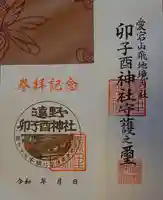 愛宕山飛地境内社
卯子酉神社守護之璽
参拝記念
遠野
卯子酉神社
令和 年 月 日